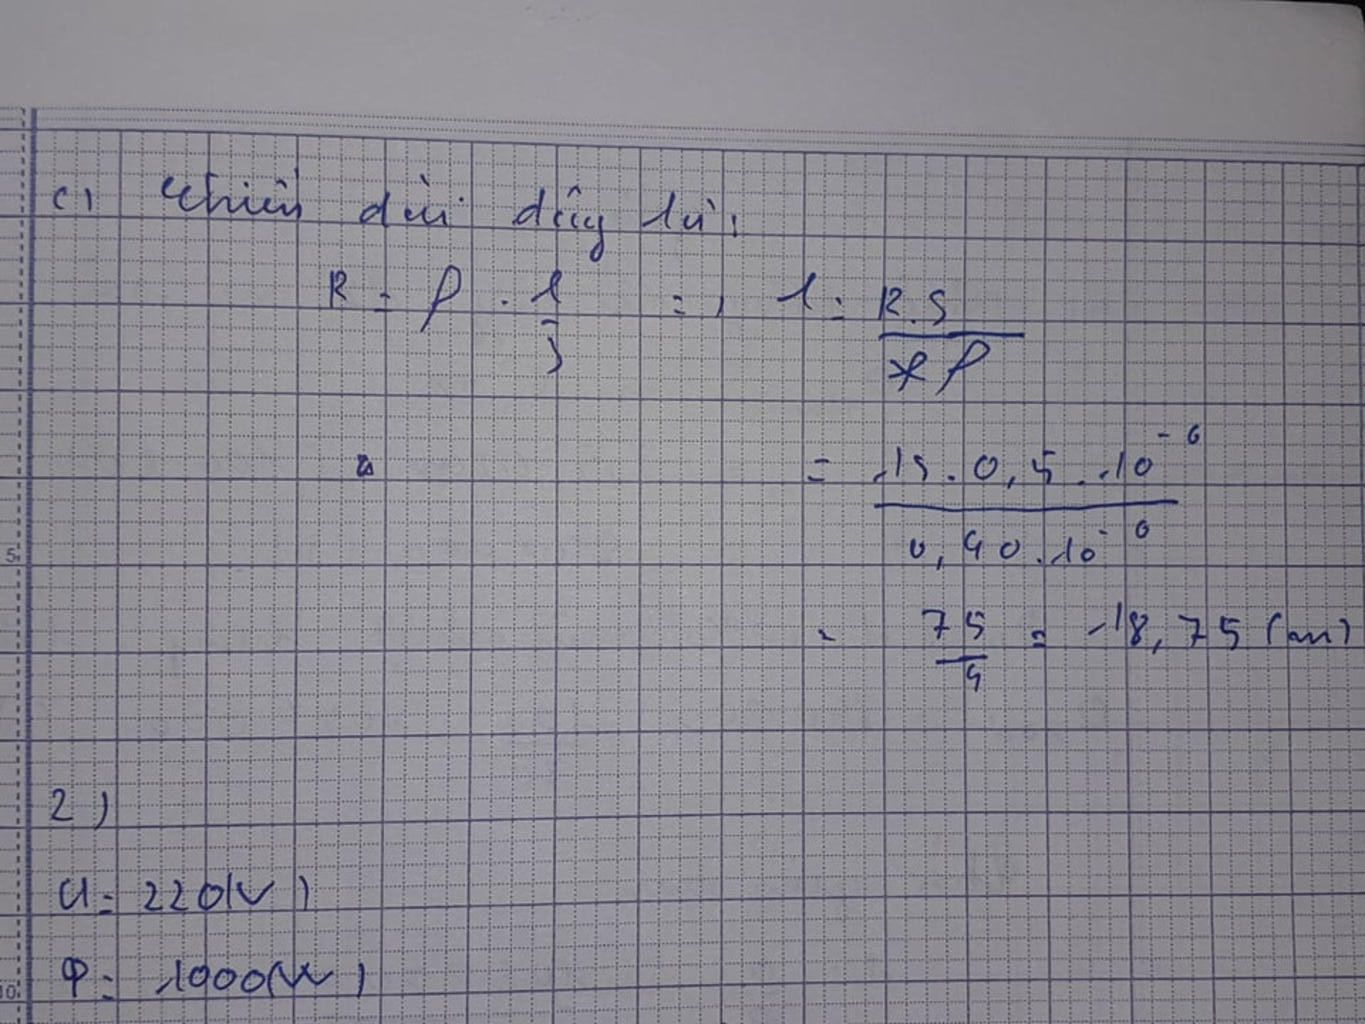 c) Chiều dài dây là:
R = ρ . l/S => l = R.S/ρ
= 15.0,5.10^-6/0,40.10^-6
= 75/4 = 18,75 (m)
5
2)
U = 220(V)
P = 1000(W)
10